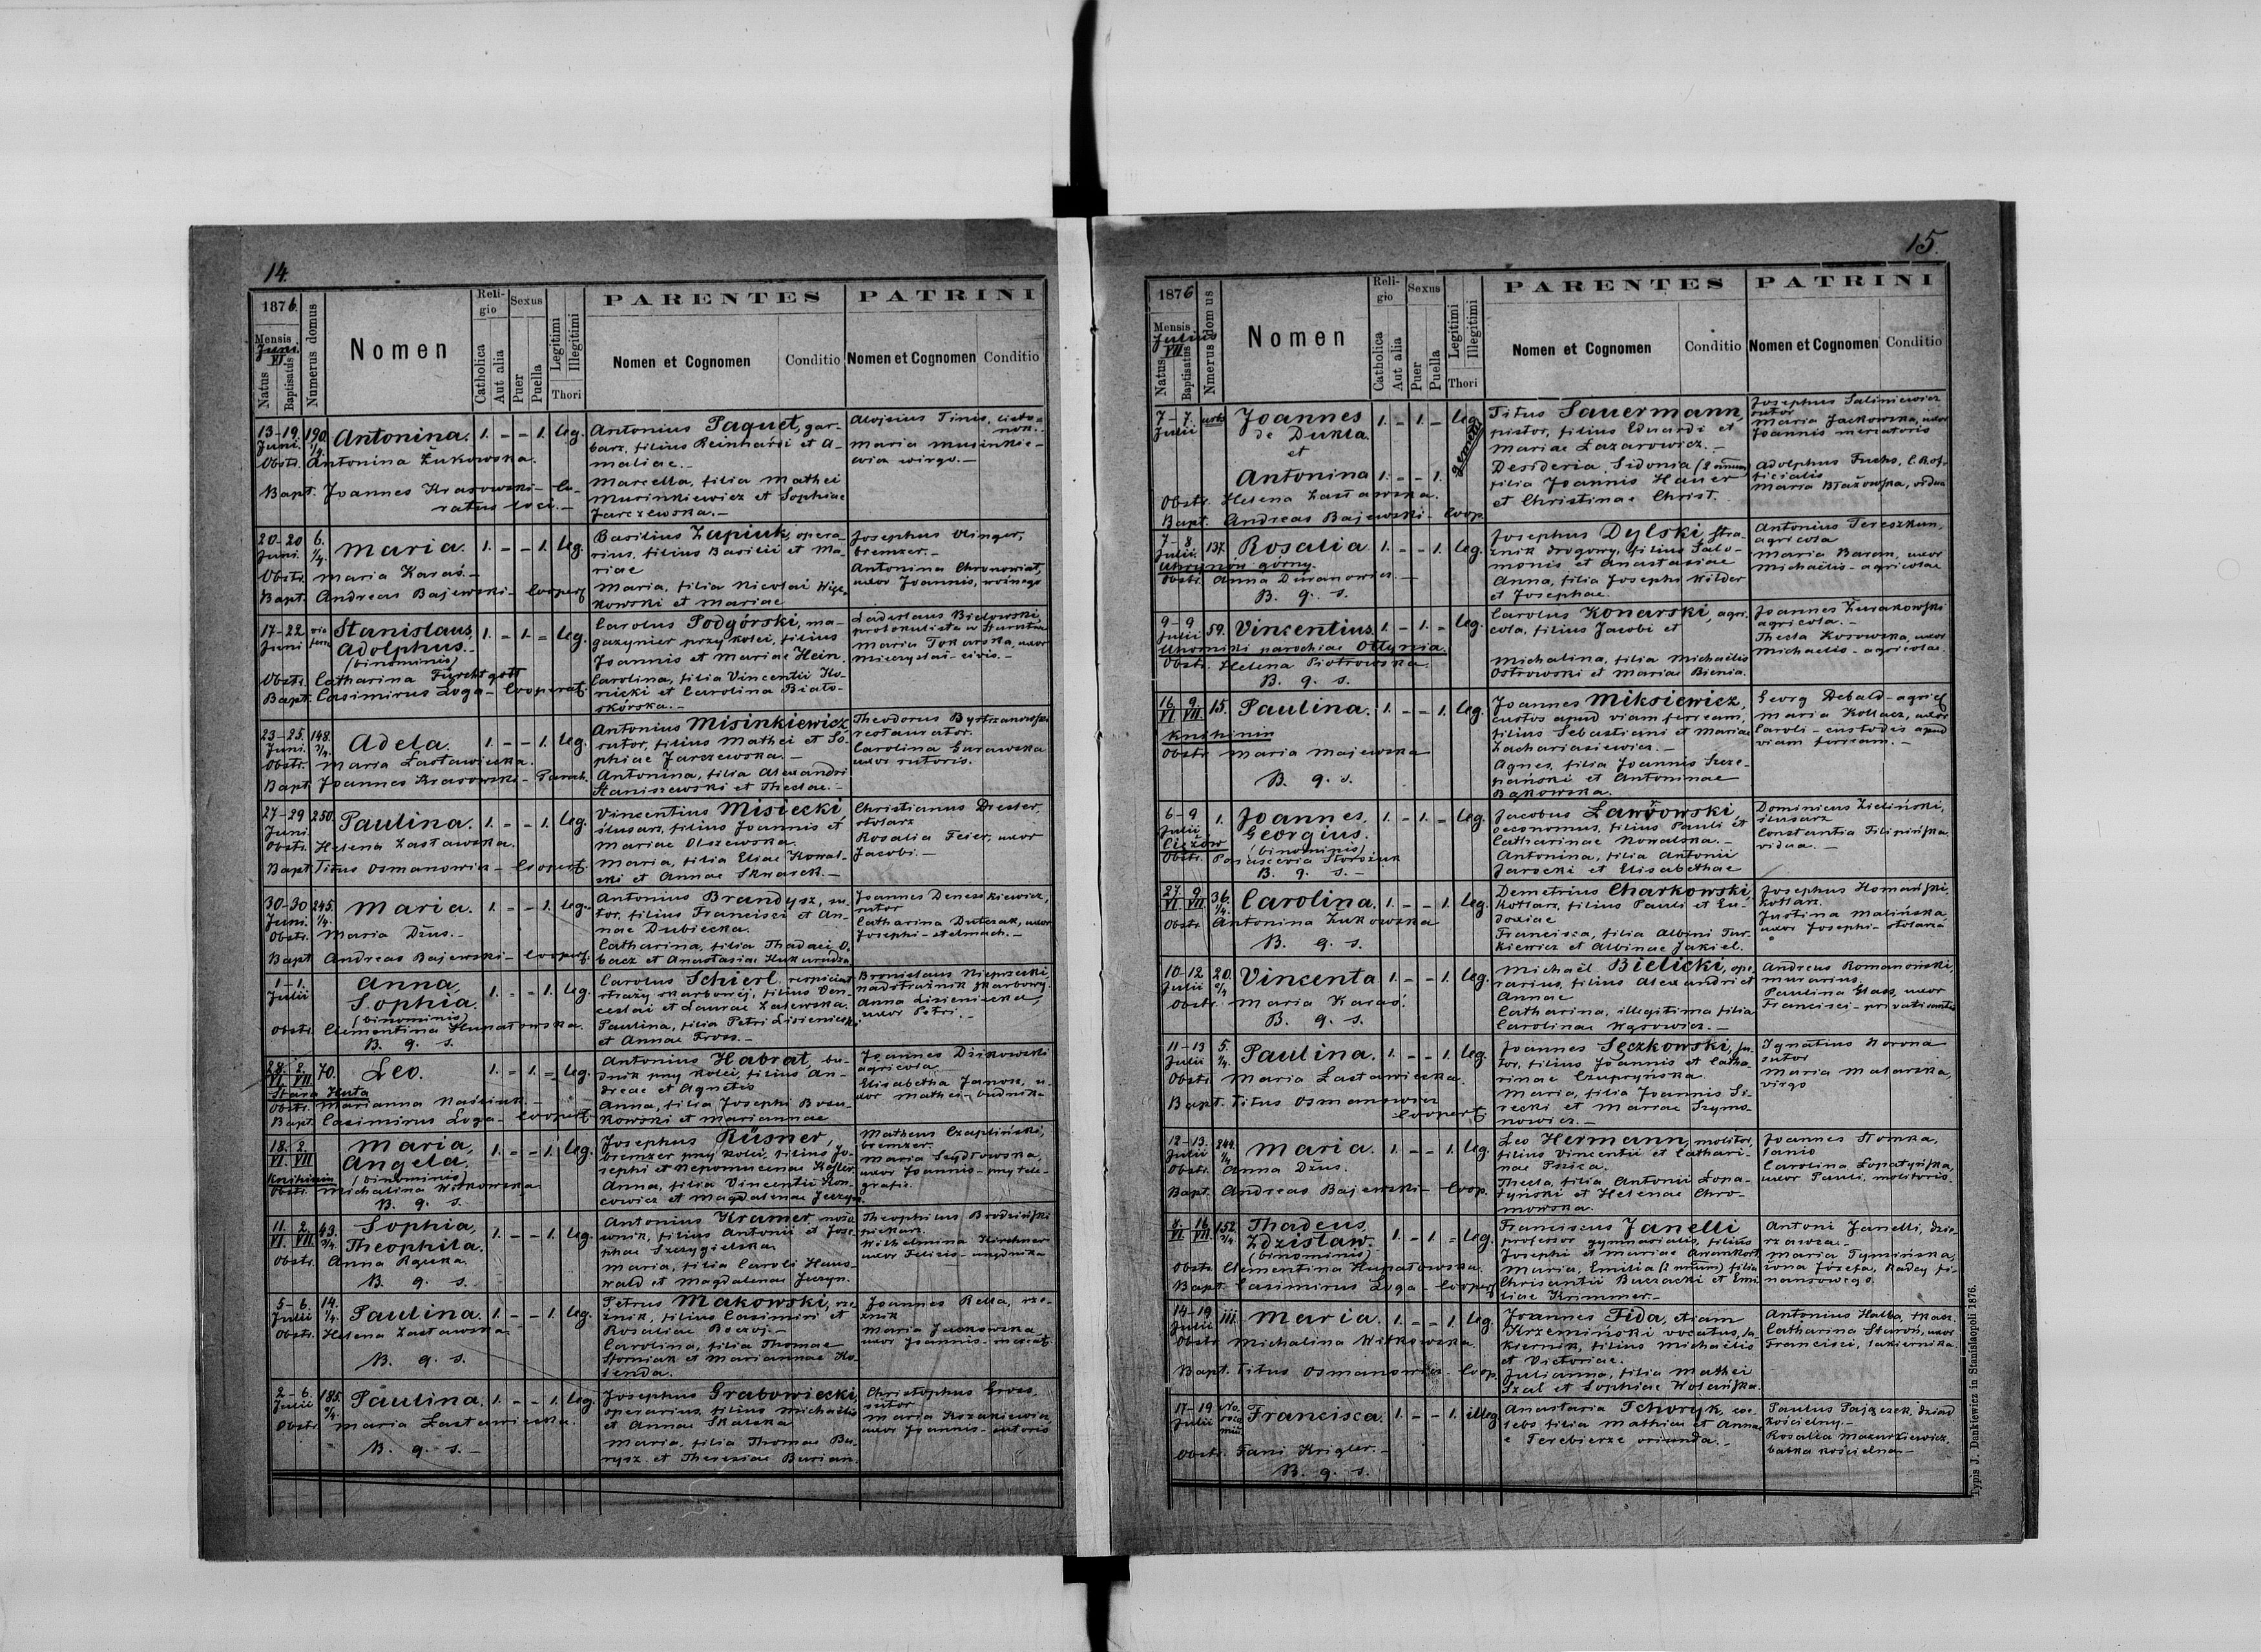 14.
1876.
Mensis
Juni
VI.
Natus
Baptisatus
Numerus domus
Nomen
Religio
Catholica
Aut alia
Sexus
Puer
Puella
Legitimi
Illegitimi
Thori
PARENTES
Nomen et Cognomen
Conditio
PATRINI
Nomen et Cognomen
Conditio
13-19 190. Antonina. 1. - - 1. leg.
Juni. 1/4.
Obstr. Antonina Żukowska.
Bapt. Joannes Krasowski - Cu-
ratus loci. -
Antonius Paquet, gar-
barz, filius Reinhardi et A-
maliae. -
Marcella, filia Mathei
Murinkiewicz et Sophiae
Jarczewska. -
Alojsius Tinis, listo-
nosz. -
Maria Musinkie-
wicz virgo. -
20-20 6. Maria. 1. - - 1. leg.
Juni. 1/4.
Obstr. Maria Karaś. -
Bapt. Andreas Bajewski - Cooper.
Basilius Zapiuk, opera-
rius, filius Basilii et Ma-
riae
Maria, filia Nicolai
kowski et Mariae
Josephus Olinger,
bremzer. -
Antonina Chronowiat,
uxor Joannis, woźnego
17-22 Stanislaus, 1. - 1. - leg.
Juni Adolphus. -
(binominis)
Obstr. Catharina Furchtgott
Bapt. Casimirus Loga - Cooperat.
Carolus Podgórski, ma-
gazynier przy kolei, filius
Joannis et Mariae Hein.
Carolina, filia Vincentii Ko-
nicki et Carolina Biało-
skórska. -
Ladislaus Bielowski,
protokulista
Maria Tokarska, uxor
Mieczyslai - civis. -
23-25. 148. Adela. 1. - - 1. leg.
Juni. 3/4.
Obstr. Maria Łastawiecka.
Bapt. Joannes Krasowski - Paroch.
Antonius Misinkiewicz
sutor, filius Mathei et So-
phiae Jarczewska. -
Antonina, filia Alexandri
Staniszewski et Theclae. -
Theodorus Bystrzanowski
restaurator.
Carolina Gurawska
uxor sutoris.
27-29 250. Paulina. 1. - - 1. leg.
Juni
Obstr. Helena Zastawska.
Bapt. Titus Osmanowicz - Cooper.
Vincentius Misiecki
ślusarz, filius Joannis et
Mariae Olszewska.
Maria, filia Eliae Kowal-
ski et Annae Skwarek. -
Christianus Drester,
stolarz
Rosalia Feier, uxor
Jacobi. -
30-30 245. Maria. 1. - - 1. leg.
Juni. 1/4.
Obstr. Maria Dżus. -
Bapt. Andreas Bajewski - Cooper.
Antonius Brandysz, su-
tor, filius Francisci et An-
nae Dubiecka.
Catharina, filia Thadaei O-
bacz et Anastasiae Kukurudza
Joannes Denesikiewicz,
sutor
Catharina Dutczak, uxor
Josephi - stelmach. -
1-1. Anna, 1. - - 1. leg.
Julii Sophia.
(binominis)
Obstr. Clementina Hupałowska.
B. q. s.
Carolus Schierl, respicient
straży skarbowéj, filius Ven-
ceslai et Laurae Zalewska.
Paulina, filia Petri Lisieniecki
et Annae Fross. -
Bronislaus Nieprzecki,
nadstrażnik skarbowy.
Anna Lisieniecka,
uxor Petri. -
28. 2. 70. Leo. 1. - 1. - leg.
VI. VII.
Stara Huta
Obstr. Marianna
Bapt. Casimirus Loga - Cooper.
Antonius Habrat, bu-
dnik przy kolei, filius An-
dreae et Agnetis
Anna, filia Josephi Bosu-
kowski et Mariannae
Joannes Dzikowski
agricola.
Elisabetha Janosz, u-
xor Mathei - budnik.
18. 2. Maria, 1. - - 1. leg.
VI. VII Angela.
Knihinin (binominis)
Obstr. Michalina Witkowska
B. q. s.
Josephus Rüsner,
bremzer przy kolei, filius Jo-
sephi et Nepomucenae Kosler.
Anna, filia Vincentii Kon-
cowicz et Magdalenae Juzyn.
Matheus Czapliński,
bremzer.
Maria Seydłowska,
uxor Joannis - przy tele-
grafie.
11. 2. 43. Sophia, 1. - - 1. leg.
VI. VII. 3/4. Theophila.
Obstr. Anna Rąpka
B. q. s.
Antonius Kramer, nożo
wnik, filius Antonii et Jose-
phae Szczygielska
Maria, filia Caroli Haus-
wald et Magdalenae Juzyn.
Theophilus Brodziński
piekarz
Wilhelmina Kirschner
uxor Felicis - urzędnika
5-6. 14. Paulina. 1. - - 1. leg.
Julii 1/4.
Obstr. Helena Zastawska
B. q. s.
Petrus Makowski, rze-
źnik, filius Casimiri et
Rosaliae Boczoj. -
Carolina, filia Thomae
Storniak et Mariannae Ko-
lenda.
Joannes Rella, rze-
źnik
Maria Jackowska
uxor Joannis - mercat.
2-6. 185. Paulina. 1. - - 1. leg.
Julii
Obstr. Maria Łastawiecka.
B. q. s. -
Josephus Grabowiecki
operarius, filius Michaëlis
et Annae Skalska
Maria, filia Thomae Bu-
rysz et Theresiae Burian.
Christophus Gross,
sutor
Maria Kozakiewicz
uxor Joannis - sutoris
15.
1876
Mensis
Julius
VII.
Natus
Baptisatus
Nmerus domus
Nomen
Religio
Catholica
Aut alia
Sexus
Puer
Puella
Legitimi
Illegitimi
Thori
PARENTES
Nomen et Cognomen
Conditio
PATRINI
Nomen et Cognomen
Conditio
7-7. Joannes 1. - 1. - leg
Julii de Dukla. gemeni
et
Antonina 1. - - 1.
Obstr. Helena Zastawska.
Bapt. Andreas Bajewski - Coop.
Titus Sauermann,
pistor, filius Eduardi et
Mariae Lazarowicz. -
Desideria, Sidonia (2 nnum)
filia Joannis Hauer
et Christinae Christ.
Josephus Saliniewicz
sutor
Maria Jackowska, uxor
Joannis mercatoris
Adolphus Fuchs, C.R. of-
ficialis
Maria Błażowska, vidua
7-8 137. Rosalia 1. - - 1. leg.
Julii.
Uhrynów górny.
Obstr. Anna Duranowicz. -
B. q. s.
Josephus Dylski, stra-
żnik drogowy, filius Salo-
monis et Anastasiae
Anna, filia Josephi Wilder
et Josephae.
Antonius Tereszkun,
agricola
Maria Baran, uxor
Michaëlis - agricolae
9-9 59. Vincentius 1. - 1. - leg.
Julii
Uhorniki parochiae Ottynia.
Obstr. Helena Piotrowska.
B. q. s.
Carolus Konarski, agri-
cola, filius Jacobi et
Michalina, filia Michaëlis
Ostrowski et Mariae Bienia.
Joannes Żurakowski
agricola. -
Thecla Kosowska, uxor
Michaëlis - agricolae.
16. 9. 15. Paulina. 1. - - 1. leg.
VI VII.
Knihinin
Obstr. Maria Majewska
B. q. s.
Joannes Miksiewicz,
custos apud viam ferream,
filius Sebastiani et Mariae
Zachariasiewicz. -
Agnes, filia Joannis Szcze-
pański et Antoninae
Bąkowska.
Georg Debald - agric.
Maria Kollacz, uxor
Caroli - custodis apud
viam ferream. -
6-9 1. Joannes, 1. - 1. - leg.
Julii Georgius.
Cieżów (binominis)
Obstr. Parascevia Storożuk
B. q. s. -
Jacobus Ławrowski,
oeconomus, filius Pauli et
Catharinae Nowalska. -
Antonina, filia Antonii
Jarocki et Elisabethae
Dominicus Zieliński,
ślusarz
Constantia Filipińska
vidua. -
27. 9. 36. Carolina. 1. - - 1. leg.
VI VII 1/4.
Obstr. Antonina Żukowska
B. q. s.
Demetrius Charkowski
kotlarz, filius Pauli et Eu-
doxiae
Francisca, filia Albini Tur-
kiewicz et Albinae Jakiel.
Josephus Homański,
kotlarz.
Justina Malińska,
uxor Josephi - stolarza
10-12 20. Vincenta 1. - - 1. leg.
Julii
Obstr. Maria Karaś.
B. q. s.
Michaël Bielicki, ope-
rarius, filius Alexandri et
Annae
Catharina, illegitima filia
Carolinae Wąsowicz. -
Andreas Romanoński,
murarius.
Paulina Glass, uxor
Francisci - privatisantis
11-13 5. Paulina. 1. - - 1. leg.
Julii 1/4.
Obstr. Maria Łastawiecka.
Bapt. Titus Osmanowicz
Cooper.
Joannes Sęczkowski, su-
tor, filius Joannis et Catha-
rinae Czupryńska
Maria, filia Joannis Si-
recki et Mariae Szyms-
nowicz. -
Ignatius Korona
sutor
Maria Matarska,
virgo
12-13. 244. Maria. 1. - - 1. leg.
Julii 1/4
Obstr. Anna Dżus.
Bapt. Andreas Bajewski - Coop.
Leo Hermann, molitor,
filius Vincentii et Cathari-
nae Pszica.
Thecla, filia Antonii Łopa-
tyński et Helenae Chro-
mowska.
Joannes Słomka,
lanio
Carolina Łopatyńska,
uxor Pauli, molitoris.
8. 16. 152. Thadeus, 1. - 1. - leg.
VI. VII. 3/4 Zdzisław.
(binominis)
Obstr. Clementina Hupałowska.
Bapt. Casimirus Loga - Cooper.
Franciscus Janelli
professor gymnasialis, filius
Josephi et Mariae
Maria, Emilia (2 nnum) filia
Chrisantii Buczacki et Emi-
liae Krimmer. -
Antoni Janelli, dzie-
rzawca. -
Maria Tymińska,
żona Józefa, Radcy fi-
nansowego.
14-19 111 Maria. 1. - - 1. leg.
Julii
Obstr. Michalina Witkowska.
Bapt. Titus Osmanowicz - Coop.
Joannes Fida, etiam
Krzemiński vocatus, la-
kiernik, filius Michaëlis
et Victoriae.
Julianna, filia Mathei
Szal et Sophiae Wolańska.
Antonius Halba, tkacz.
Catharina Staroń, uxor
Francisci, lakiernika.
17-19 Francisca. 1. - - 1. illeg
Julii
Obstr. Fani Krigler. -
B. q. s.
Anastasia Tchoryk, coe-
lebs filia Mathiae et Annae
e Terebierze oriunda. -
Paulus Pajączek, dziad
kościelny. -
Rosalia Mazurkiewicz,
babka kościelna -
Typis J. Dankiewicz in Stanislaopoli 1876.